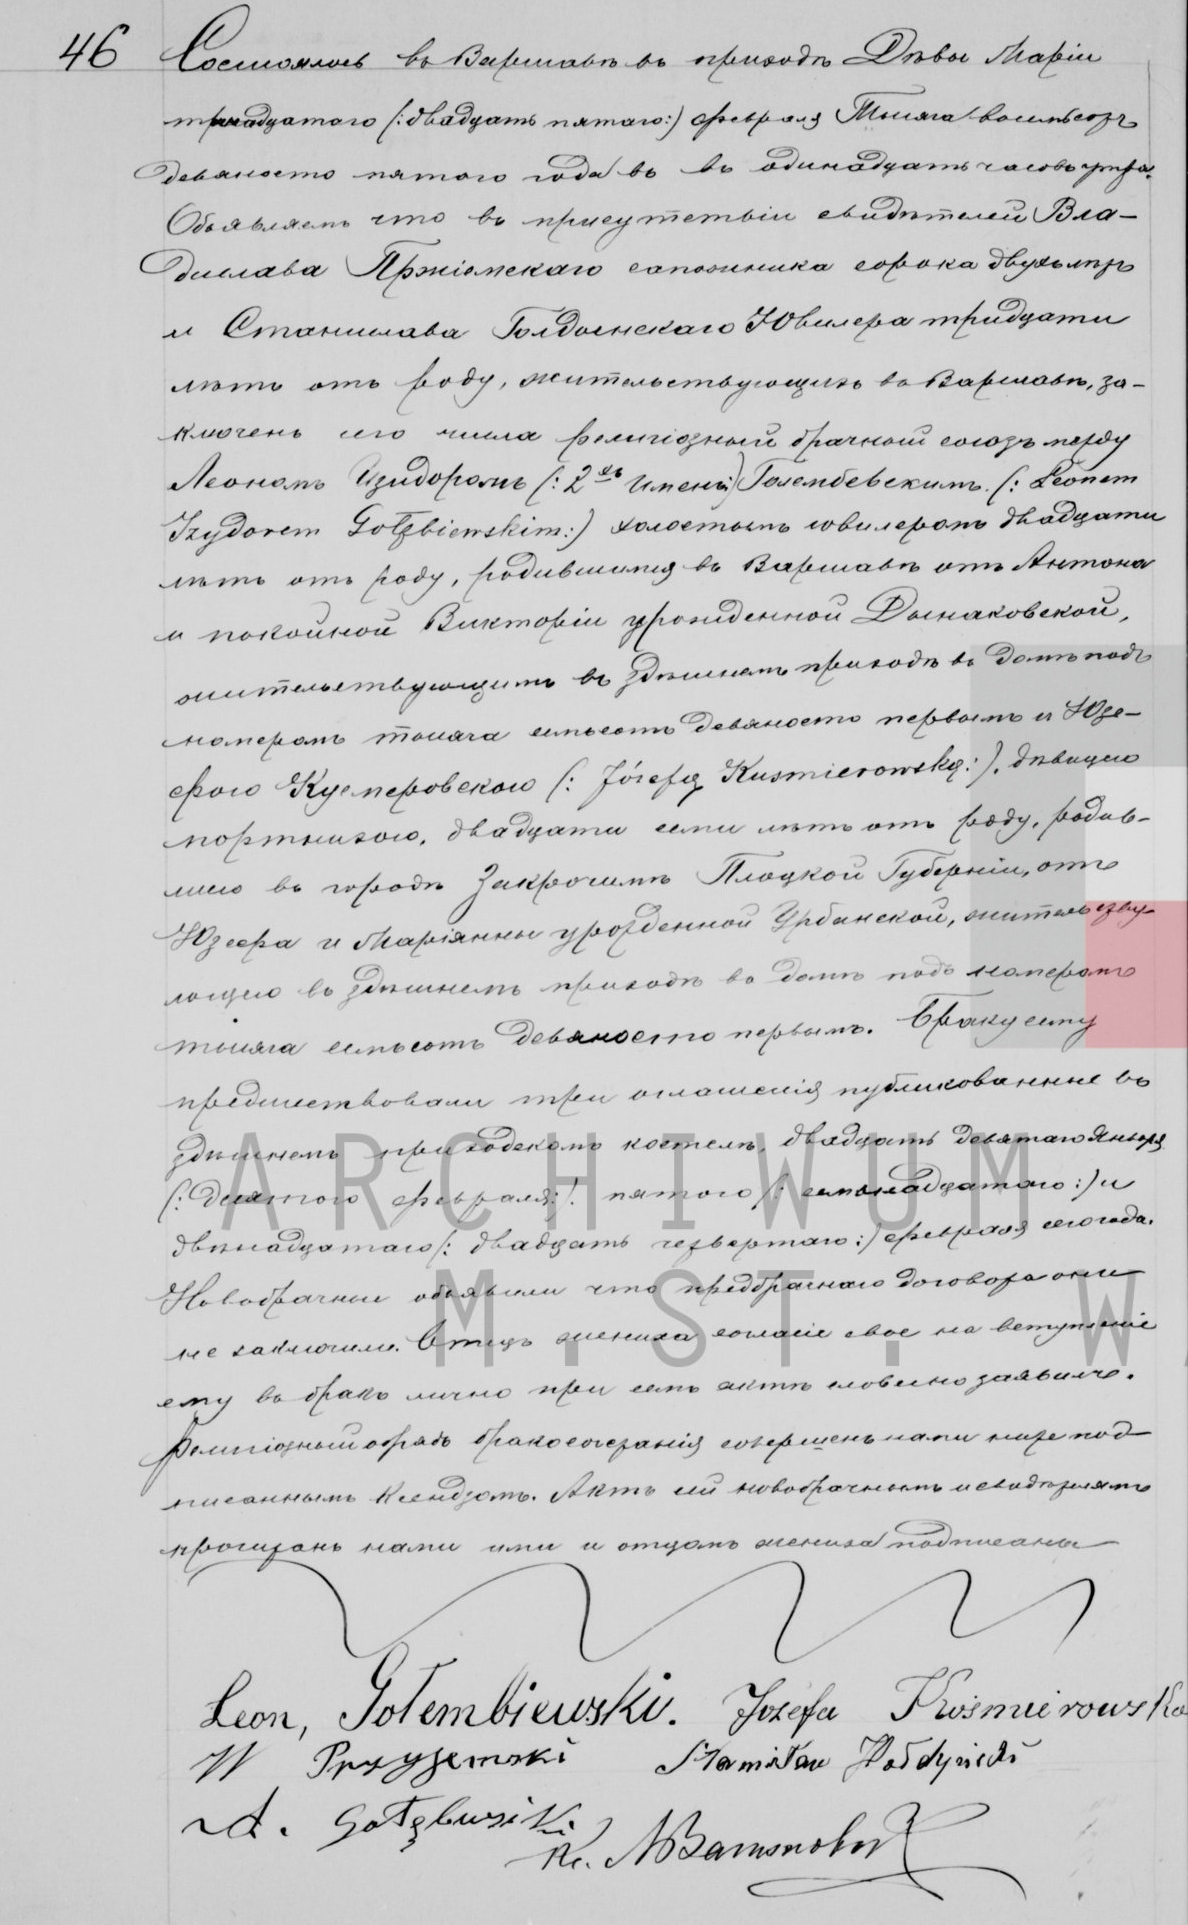 46
Состоялось въ Варшавѣ въ приходѣ Дѣвы Маріи
тринадцатаго (: двадцать пятаго:) февраля Тысяча восемьсотъ
девяносто пятого года въ въ одинадцать часовъ утра.
Объявляемъ что въ присутствіи свидѣтелей Вла-
дислава Пржіемскаго сапожника сорока двухъ лѣтъ
и Станислава Голдынскаго Ювилера тридцати
лѣтъ отъ роду, жительствующихъ въ Варшавѣ, за-
ключенъ сего числа религіозный брачный союзъ между
Леономъ Изидоромъ (: 2хъ именъ) Голембевскимъ (: Leonem
Izydorem Gołębiewskim:) холостымъ ювилеромъ двадцати
лѣтъ отъ роду, родившимся въ Варшавѣ отъ Антона
и покойной Викторіи урожденной Дынаковской,
жительствующимъ въ здѣшнемъ приходѣ въ домѣ подъ
номеромъ тысяча семьсотъ девяносто первымъ и Юзе-
фою Кусмеровскою (: Józefą Kusmierowską:), дѣвицею
портнихою, двадцати семи лѣтъ отъ роду, родив-
шею въ городѣ Закрочимѣ Плоцкой Губерніи, отъ
Юзефа и Маріянны урожденной Урбанской, жительству-
ющею въ здѣшнемъ приходѣ въ домѣ подъ номеромъ
тысяча семьсотъ девяносто первымъ. Браку сему
предшествовали три оглашенія публикованные въ
здѣшнемъ приходскомъ костелѣ, двадцать девятаго Января
(: Десятого февраля:) пятого (: семьнадцатаго:) и
двѣнадцатаго (: двадцать четвертаго:) февраля сего года.
Новобрачные объявили что предбрачнаго договора они
не заключили. Отецъ жениха согласіе свое на вступленіе
ему въ бракъ лично при семъ актѣ словесно заявилъ.
Религіозный обрядъ бракосочетанія совершенъ нами ниже под-
писаннымъ Ксендзомъ. Актъ сей новобрачнымъ и свидѣтелямъ
прочитанъ нами ими и отцомъ жениха подписанъ
Leon, Gołembiewski. Jozefa Kośmierowska
W Przyjemski Stanisław Hołdyński
A. Gołębiewski
Кс.
ARCHIWUM
M. ST. W